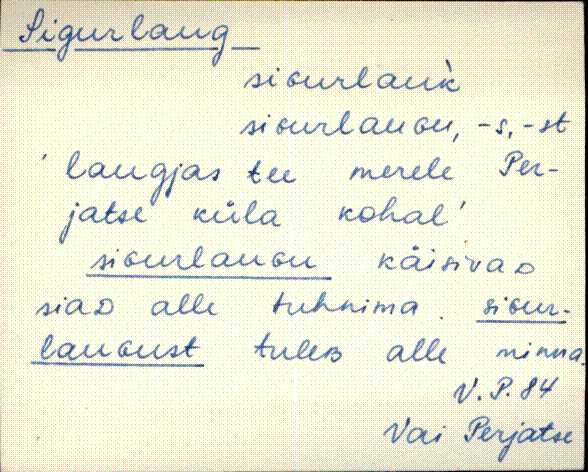 Sigurlaug
siGurlauk̀
siGurlauGu, -s, -st
'laugjas tee merele Per-
jatse küla kohal'
siGurlauGu käisivaD
siaD alle tuhnima. siGur-
lauGust tuleB alle minna.
V.P. 84
Vai Perjatse